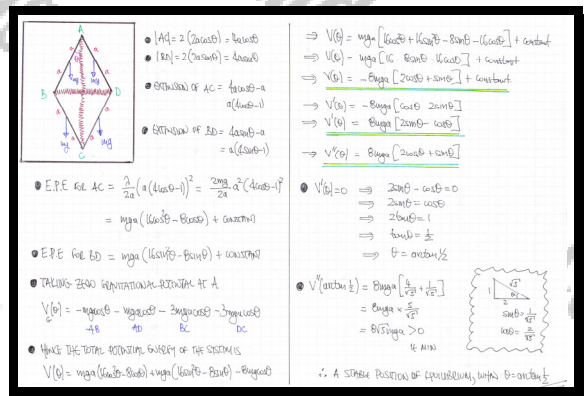 A
B
D
C
a
a
a
a
a
a
a
a
mg
mg
mg
mg
|AC| = 2(2acosθ) = 4acosθ
|BD| = 2(2asinθ) = 4asinθ
EXTENSION OF AC = 4acosθ - a
a(4cosθ-1)
EXTENSION OF BD = 4asinθ - a
= a(4sinθ-1)
E.P.E FOR AC = λ/2a (a(4cosθ-1))² = 2mg/2a a²(4cosθ-1)²
= mga(16cos²θ - 8cosθ) + CONSTANT
E.P.E FOR BD = mga(16sin²θ - 8sinθ) + CONSTANT
TAKING ZERO GRAVITATIONAL POTENTIAL AT A
V_G(θ) = -mgacosθ - mgacosθ - 3mgacosθ - 3mgacosθ
AB AD BC DC
HENCE THE TOTAL POTENTIAL ENERGY OF THE SYSTEM IS
V(θ) = mga(16cos²θ - 8cosθ) + mga(16sin²θ - 8sinθ) - 8mgacosθ
⇒ V(θ) = mga[16cos²θ + 16sin²θ - 8sinθ - 16cosθ] + constant
⇒ V(θ) = mga[16 - 8sinθ - 16cosθ] + constant
⇒ V(θ) = -8mga[2cosθ + sinθ] + constant
⇒ V'(θ) = -8mga[cosθ - 2sinθ]
⇒ V'(θ) = 8mga[2sinθ - cosθ]
⇒ V''(θ) = 8mga[2cosθ + sinθ]
V'(θ)=0 ⇒ 2sinθ - cosθ = 0
⇒ 2sinθ = cosθ
⇒ 2tanθ = 1
⇒ tanθ = 1/2
⇒ θ = arctan 1/2
V''(arctan 1/2) = 8mga[4/√5 + 1/√5]
= 8mga × 5/√5
= 8√5 mga > 0
MIN
1
√5
θ
2
sinθ = 1/√5
cosθ = 2/√5
∴ A STABLE POSITION OF EQUILIBRIUM, WHEN θ = arctan 1/2